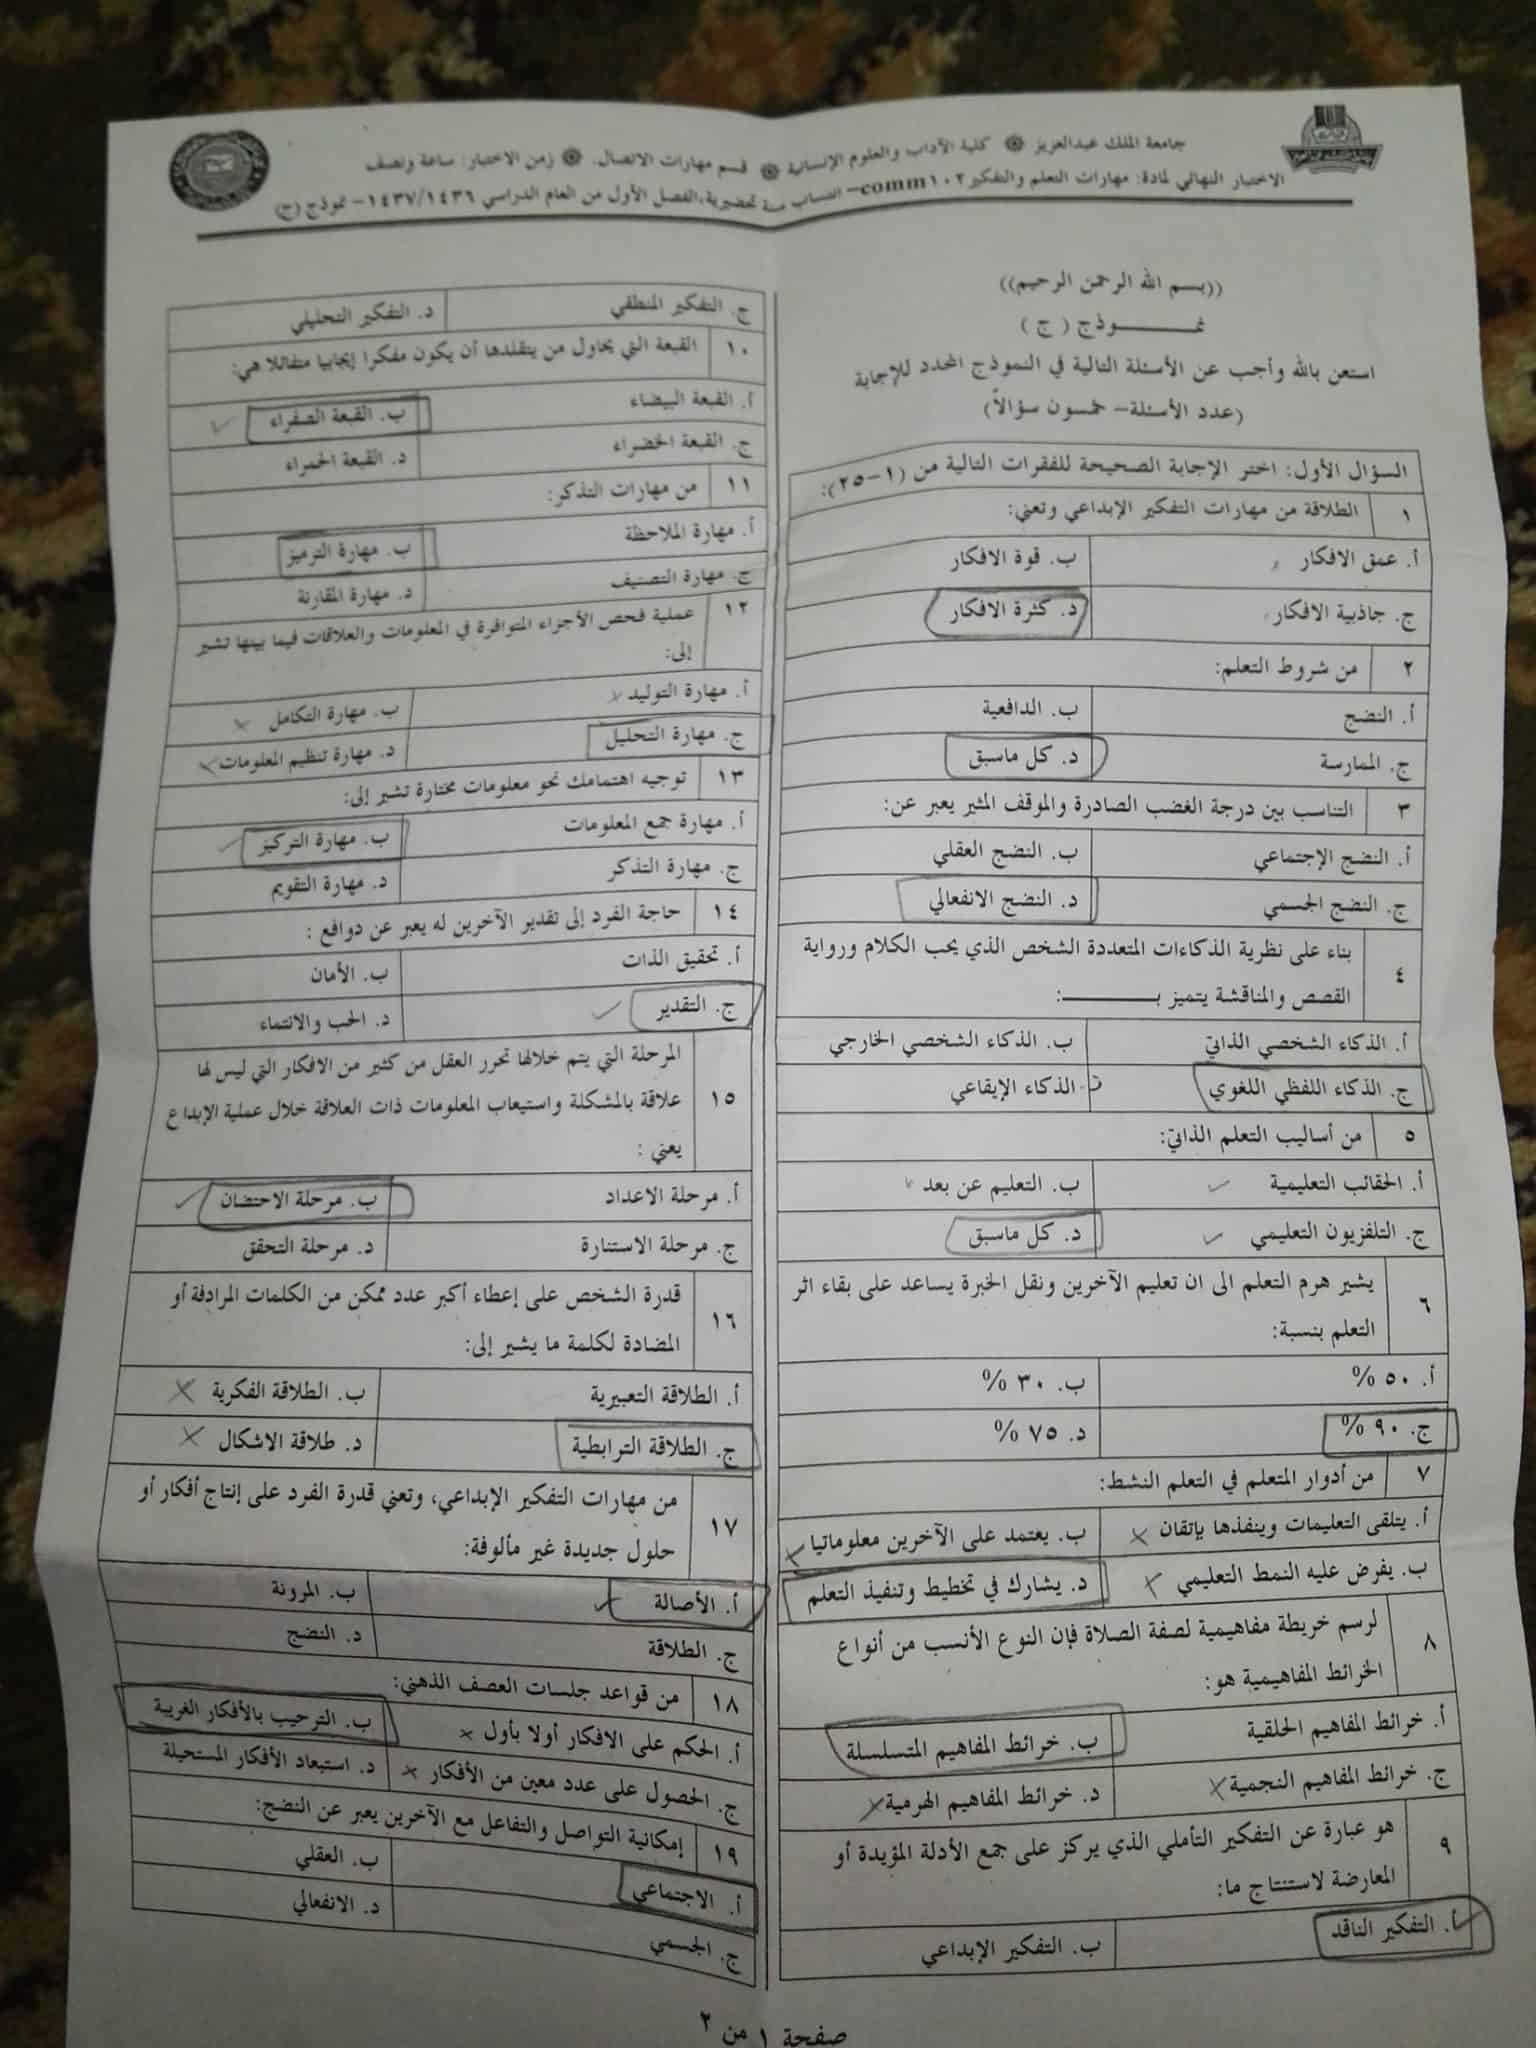 جامعة الملك عبدالعزيز ۞ كلية الآداب والعلوم الإنسانية ۞ قسم مهارات الاتصال. ۞ زمن الاختبار: ساعة ونصف
الاختبار النهائي لمادة: مهارات التعلم والتفكير comm١٠٢– انتساب سنة تحضيرية،الفصل الأول من العام الدراسي ١٤٣٧/١٤٣٦– نموذج (ج)
((بسم الله الرحمن الرحيم))
نمـــــــوذج ( ج )
استعن بالله وأجب عن الأسئلة التالية في النموذج المحدد للإجابة
(عدد الأسئلة– خمسون سؤالاً)
السؤال الأول: اختر الإجابة الصحيحة للفقرات التالية من (١–٢٥):
١ الطلاقة من مهارات التفكير الإبداعي وتعني:
أ. عمق الافكار ب. قوة الافكار
ج. جاذبية الافكار د. كثرة الافكار
٢ من شروط التعلم:
أ. النضج ب. الدافعية
ج. الممارسة د. كل ماسبق
٣ التناسب بين درجة الغضب الصادرة والموقف المثير يعبر عن:
أ. النضج الإجتماعي ب. النضج العقلي
ج. النضج الجسمي د. النضج الانفعالي
٤ بناء على نظرية الذكاءات المتعددة الشخص الذي يحب الكلام ورواية
القصص والمناقشة يتميز بـــــــــ:
أ. الذكاء الشخصي الذاتي ب. الذكاء الشخصي الخارجي
ج. الذكاء اللفظي اللغوي الذكاء الإيقاعي
٥ من أساليب التعلم الذاتي:
أ. الحقائب التعليمية ب. التعليم عن بعد
ج. التلفزيون التعليمي د. كل ماسبق
٦ يشير هرم التعلم الى ان تعليم الآخرين ونقل الخبرة يساعد على بقاء اثر
التعلم بنسبة:
أ. ٥٠ % ب. ٣٠ %
ج. ٩٠ % د. ٧٥ %
٧ من أدوار المتعلم في التعلم النشط:
أ. يتلقى التعليمات وينفذها بإتقان ب. يعتمد على الآخرين معلوماتيا
ب. يفرض عليه النمط التعليمي د. يشارك في تخطيط وتنفيذ التعلم
٨ لرسم خريطة مفاهيمية لصفة الصلاة فإن النوع الأنسب من أنواع
الخرائط المفاهيمية هو:
أ. خرائط المفاهيم الحلقية ب. خرائط المفاهيم المتسلسلة
ج. خرائط المفاهيم النجمية د. خرائط المفاهيم الهرمية
٩ هو عبارة عن التفكير التأملي الذي يركز على جمع الأدلة المؤيدة أو
المعارضة لاستنتاج ما:
أ. التفكير الناقد ب. التفكير الإبداعي
ج. التفكير المنطقي د. التفكير التحليلي
١٠ القبعة التي يحاول من يتقلدها أن يكون مفكرا إيجابيا متفائلا هي:
أ. القبعة البيضاء ب. القبعة الصفراء
ج. القبعة الخضراء د. القبعة الحمراء
١١ من مهارات التذكر:
أ. مهارة الملاحظة ب. مهارة الترميز
ج. مهارة التصنيف د. مهارة المقارنة
١٢ عملية فحص الأجزاء المتوافرة في المعلومات والعلاقات فيما بينها تشير
إلى:
أ. مهارة التوليد ب. مهارة التكامل
ج. مهارة التحليل د. مهارة تنظيم المعلومات
١٣ توجيه اهتمامك نحو معلومات مختارة تشير إلى:
أ. مهارة جمع المعلومات ب. مهارة التركيز
ج. مهارة التذكر د. مهارة التقويم
١٤ حاجة الفرد إلى تقدير الآخرين له يعبر عن دوافع :
أ. تحقيق الذات ب. الأمان
ج. التقدير د. الحب والانتماء
١٥ المرحلة التي يتم خلالها تحرر العقل من كثير من الافكار التي ليس لها
علاقة بالمشكلة واستيعاب المعلومات ذات العلاقة خلال عملية الإبداع
يعني :
أ. مرحلة الاعداد ب. مرحلة الاحتضان
ج. مرحلة الاستنارة د. مرحلة التحقق
١٦ قدرة الشخص على إعطاء أكبر عدد ممكن من الكلمات المرادفة أو
المضادة لكلمة ما يشير إلى:
أ. الطلاقة التعبيرية ب. الطلاقة الفكرية
ج. الطلاقة الترابطية د. طلاقة الاشكال
١٧ من مهارات التفكير الإبداعي، وتعني قدرة الفرد على إنتاج أفكار أو
حلول جديدة غير مألوفة:
أ. الأصالة ب. المرونة
ج. الطلاقة د. النضج
١٨ من قواعد جلسات العصف الذهني:
أ. الحكم على الافكار أولا بأول ب. الترحيب بالأفكار الغريبة
ج. الحصول على عدد معين من الأفكار د. استبعاد الأفكار المستحيلة
١٩ إمكانية التواصل والتفاعل مع الآخرين يعبر عن النضج:
أ. الاجتماعي ب. العقلي
ج. الجسمي د. الانفعالي
صفحة ١ من ٣